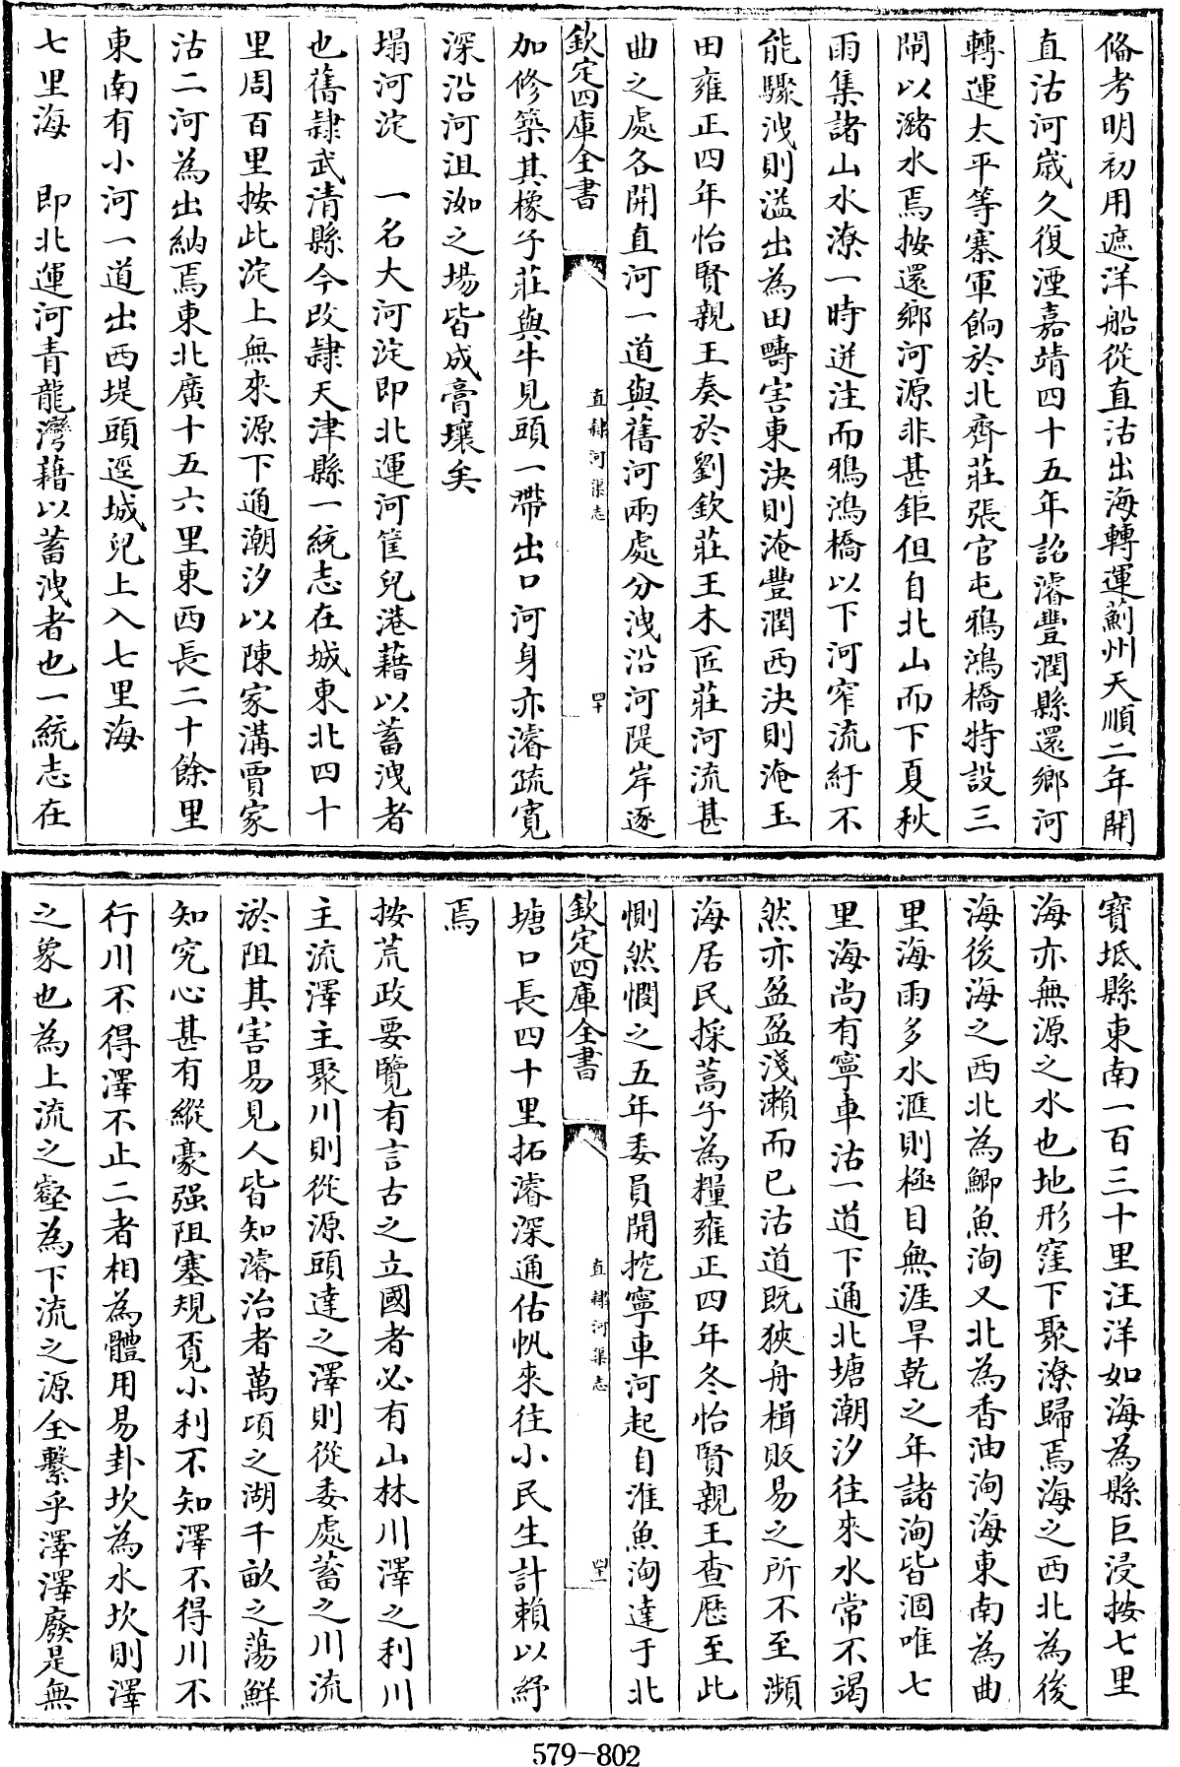 偹考明初用遮洋船從直沽出海轉運薊州天順二年開
直沽河歲久復湮嘉靖四十五年詔濬豐潤縣還鄉河
轉運太平等寨軍餉於北齊莊張官屯鴉鴻橋特設三
閘以瀦水焉按還鄉河源非甚鉅但自北山而下夏秋
雨集諸山水潦一時迸注而鴉鴻橋以下河窄流紆不
能驟洩則溢出為田疇害東決則淹豐潤西決則淹玉
田雍正四年怡賢親王奏於劉欽莊王木匠莊河流甚
曲之處各開直河一道與舊河兩處分洩沿河隄岸逐
欽定四庫全書
直隸河渠志
四十
加修築其橡子莊與牛見頭一帶出口河身亦濬疏寬
深沿河沮洳之場皆成膏壤矣
塌河淀 一名大河淀即北運河筐兒港藉以蓄洩者
也舊隸武清縣今改隸天津縣一統志在城東北四十
里周百里按此淀上無來源下通潮汐以陳家溝賈家
沽二河為出納焉東北廣十五六里東西長二十餘里
東南有小河一道出西堤頭逕城兒上入七里海
七里海 即北運河青龍灣藉以蓄洩者也一統志在
寶坻縣東南一百三十里汪洋如海為縣巨浸按七里
海亦無源之水也地形窪下聚潦歸焉海之西北為後
海後海之西北為鯽魚淘又北為香油淘海東南為曲
里海雨多水滙則極目無涯旱乾之年諸淘皆涸唯七
里海尚有寧車沽一道下通北塘潮汐往來水常不竭
然亦盈盈淺瀨而已沽道既狹舟楫販易之所不至瀕
海居民採蒿子為糧雍正四年冬怡賢親王查歷至此
惻然憫之五年委員開挖寧車河起自淮魚淘達于北
欽定四庫全書
直隸河渠志
四十一
塘口長四十里拓濬深通估帆來往小民生計賴以紓
焉
按荒政要覽有言古之立國者必有山林川澤之利川
主流澤主聚川則從源頭達之澤則從委處蓄之川流
淤阻其害易見人皆知濬治者萬頃之湖千畝之蕩鮮
知究心甚有縱豪强阻塞規覔小利不知澤不得川不
行川不得澤不止二者相為體用易卦坎為水坎則澤
之象也為上流之壑為下流之源全繫乎澤澤廢是無
579-802